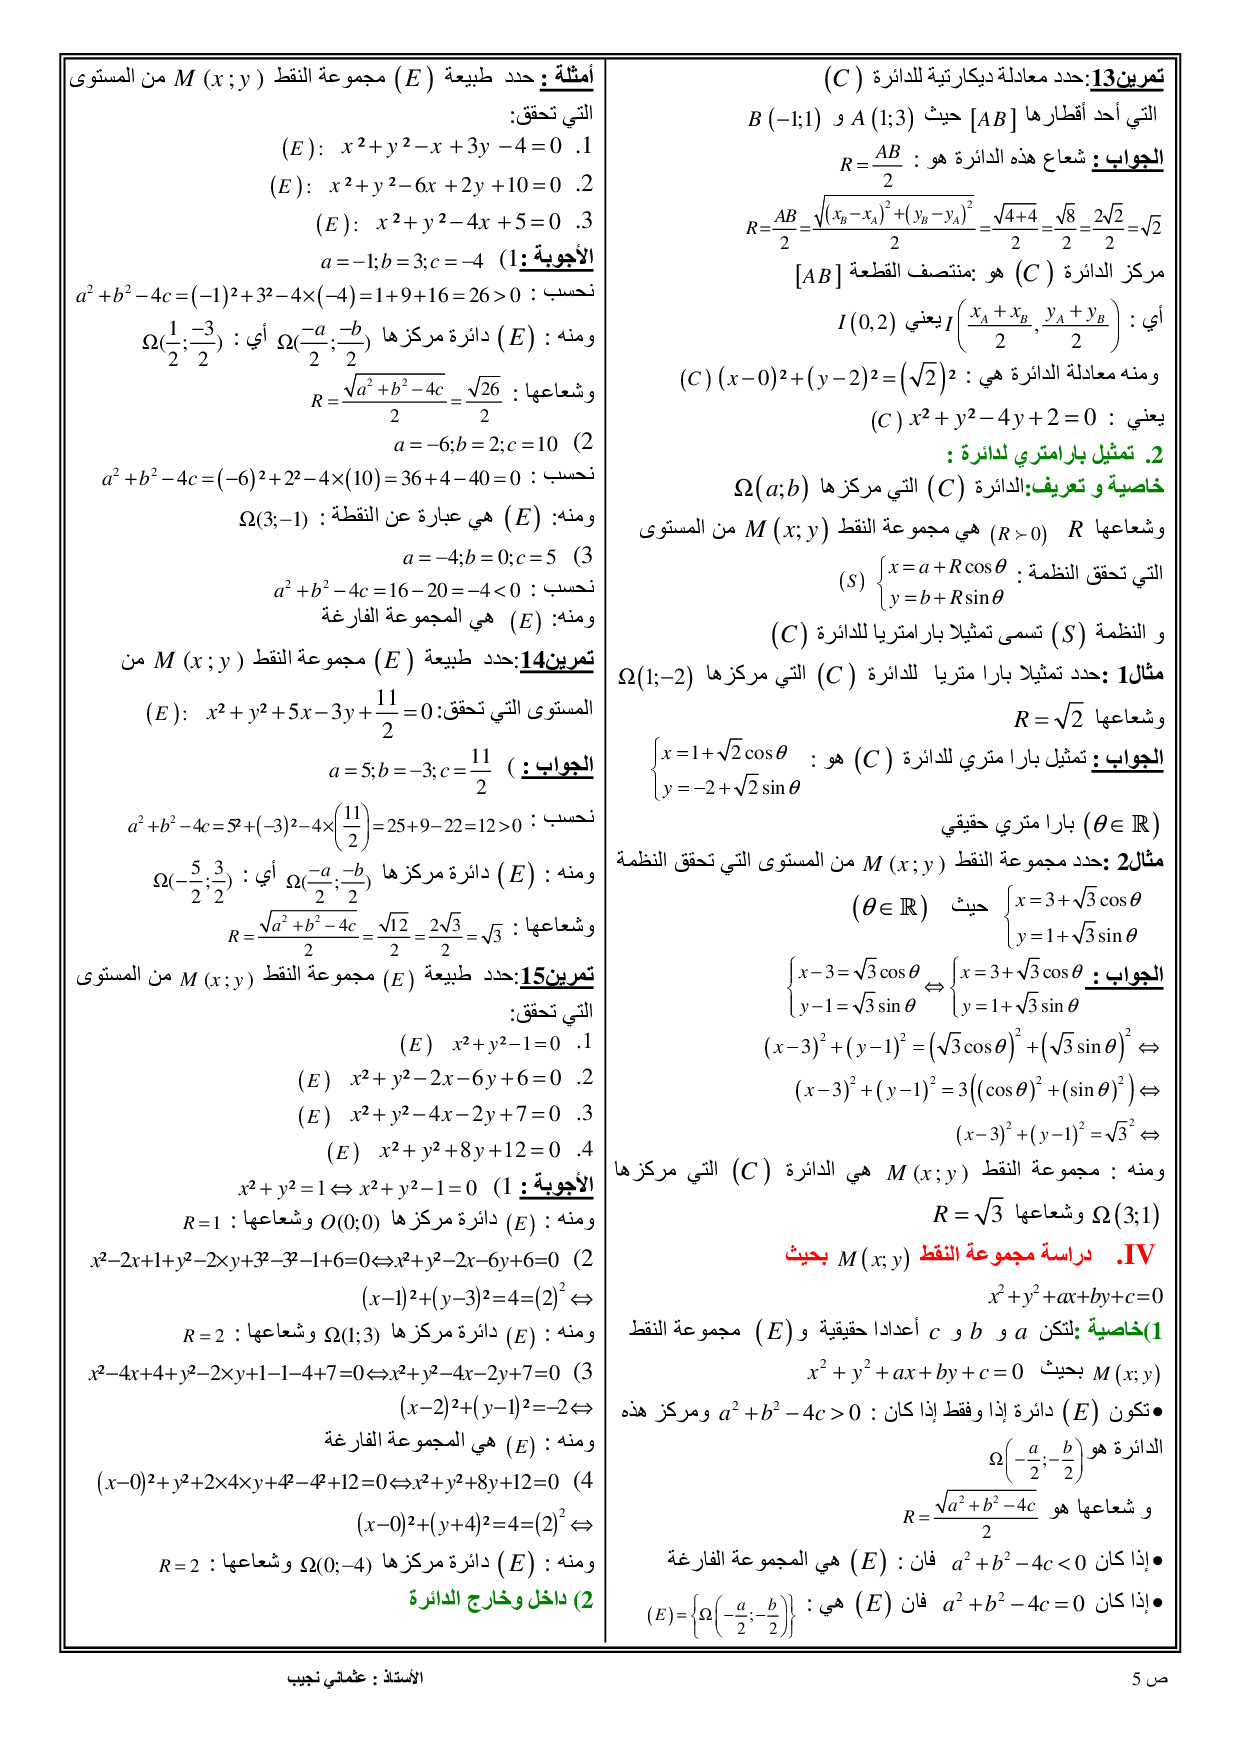 تمرين13:حدد معادلة ديكارتية للدائرة (C)
التي أحد أقطارها [AB] حيث A(1;3) و B(−1;1)
الجواب : شعاع هذه الدائرة هو : R = AB/2
R = AB/2 = √((x_B − x_A)² + (y_B − y_A)²)/2 = √(4+4)/2 = √8/2 = 2√2/2 = √2
مركز الدائرة (C) هو :منتصف القطعة [AB]
أي : I((x_A + x_B)/2 , (y_A + y_B)/2) يعني I(0,2)
ومنه معادلة الدائرة هي : (C) (x−0)² + (y−2)² = (√2)²
يعني : (C) x² + y² − 4y + 2 = 0
2. تمثيل بارامتري لدائرة :
خاصية و تعريف:الدائرة (C) التي مركزها Ω(a;b)
وشعاعها R (R ≻ 0) هي مجموعة النقط M(x;y) من المستوى
التي تحقق النظمة : (S) { x = a + R cos θ
y = b + R sin θ
و النظمة (S) تسمى تمثيلا بارامتريا للدائرة (C)
مثال1 :حدد تمثيلا بارا متريا للدائرة (C) التي مركزها Ω(1;−2)
وشعاعها R = √2
الجواب : تمثيل بارا متري للدائرة (C) هو : { x = 1 + √2 cos θ
y = −2 + √2 sin θ
(θ ∈ ℝ) بارا متري حقيقي
مثال2 :حدد مجموعة النقط M(x;y) من المستوى التي تحقق النظمة
{ x = 3 + √3 cos θ
y = 1 + √3 sin θ حيث (θ ∈ ℝ)
الجواب : { x = 3 + √3 cos θ ⇔ { x − 3 = √3 cos θ
y = 1 + √3 sin θ y − 1 = √3 sin θ
(x−3)² + (y−1)² = (√3 cos θ)² + (√3 sin θ)² ⇔
(x−3)² + (y−1)² = 3((cos θ)² + (sin θ)²) ⇔
(x−3)² + (y−1)² = √3² ⇔
ومنه : مجموعة النقط M(x;y) هي الدائرة (C) التي مركزها
Ω(3;1) وشعاعها R = √3
IV. دراسة مجموعة النقط M(x;y) بحيث
x² + y² + ax + by + c = 0
1)خاصية :لتكن a و b و c أعدادا حقيقية و (E) مجموعة النقط
M(x;y) بحيث x² + y² + ax + by + c = 0
•تكون (E) دائرة إذا وفقط إذا كان : a² + b² − 4c > 0 ومركز هذه
الدائرة هو Ω(−a/2 ; −b/2)
و شعاعها هو R = √(a² + b² − 4c)/2
•إذا كان a² + b² − 4c < 0 فان : (E) هي المجموعة الفارغة
•إذا كان a² + b² − 4c = 0 فان (E) هي : (E) = {Ω(−a/2 ; −b/2)}
أمثلة : حدد طبيعة (E) مجموعة النقط M(x;y) من المستوى
التي تحقق:
1. (E): x² + y² − x + 3y − 4 = 0
2. (E): x² + y² − 6x + 2y + 10 = 0
3. (E): x² + y² − 4x + 5 = 0
الأجوبة :1) a = −1; b = 3; c = −4
نحسب : a² + b² − 4c = (−1)² + 3² − 4×(−4) = 1+9+16 = 26 > 0
ومنه : (E) دائرة مركزها Ω(−a/2 ; −b/2) أي : Ω(1/2 ; −3/2)
وشعاعها : R = √(a² + b² − 4c)/2 = √26/2
2) a = −6; b = 2; c = 10
نحسب : a² + b² − 4c = (−6)² + 2² − 4×(10) = 36+4−40 = 0
ومنه: (E) هي عبارة عن النقطة : Ω(3;−1)
3) a = −4; b = 0; c = 5
نحسب : a² + b² − 4c = 16 − 20 = −4 < 0
ومنه: (E) هي المجموعة الفارغة
تمرين14:حدد طبيعة (E) مجموعة النقط M(x;y) من
المستوى التي تحقق: (E): x² + y² + 5x − 3y + 11/2 = 0
الجواب : ) a = 5; b = −3; c = 11/2
نحسب : a² + b² − 4c = 5² + (−3)² − 4×(11/2) = 25+9−22 = 12 > 0
ومنه : (E) دائرة مركزها Ω(−a/2 ; −b/2) أي : Ω(−5/2 ; 3/2)
وشعاعها : R = √(a² + b² − 4c)/2 = √12/2 = 2√3/2 = √3
تمرين15:حدد طبيعة (E) مجموعة النقط M(x;y) من المستوى
التي تحقق:
1. (E) x² + y² − 1 = 0
2. (E) x² + y² − 2x − 6y + 6 = 0
3. (E) x² + y² − 4x − 2y + 7 = 0
4. (E) x² + y² + 8y + 12 = 0
الأجوبة : 1) x² + y² = 1 ⇔ x² + y² − 1 = 0
ومنه : (E) دائرة مركزها O(0;0) وشعاعها : R = 1
2) x²−2x+1+y²−2×y+3²−3²−1+6=0⇔x²+y²−2x−6y+6=0
(x−1)²+(y−3)²=4=(2)² ⇔
ومنه : (E) دائرة مركزها Ω(1;3) وشعاعها : R = 2
3) x²−4x+4+y²−2×y+1−1−4+7=0⇔x²+y²−4x−2y+7=0
(x−2)²+(y−1)²=−2⇔
ومنه : (E) هي المجموعة الفارغة
4) (x−0)²+y²+2×4×y+4²−4²+12=0⇔x²+y²+8y+12=0
(x−0)²+(y+4)²=4=(2)² ⇔
ومنه : (E) دائرة مركزها Ω(0;−4) وشعاعها : R = 2
2) داخل وخارج الدائرة
ص 5
الأستاذ : عثماني نجيب